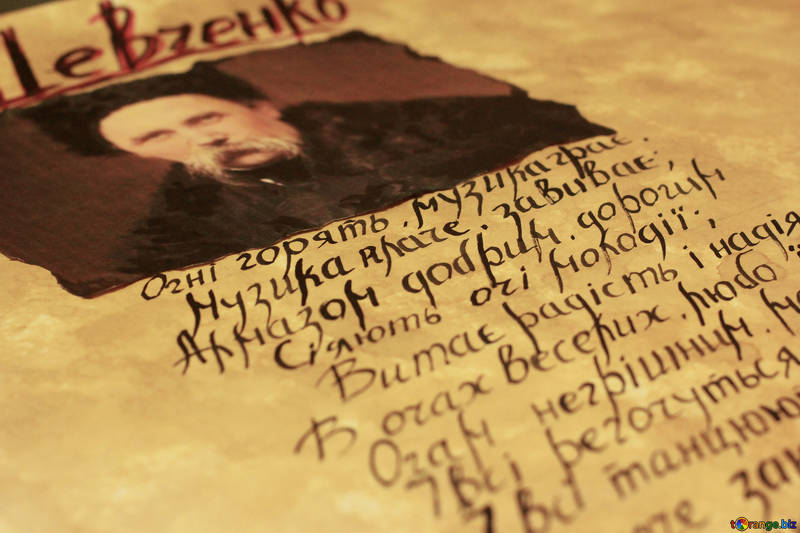 Шевченко
Огні горять, музика грає,
Музика плаче, завиває;
Алмазом добрим, дорогим
Сіяють очі молодії;
Витає радість і надія
В очах веселих, любо
Очам негрішним,
І всі регочуться
І всі танцюють
tOrange.biz